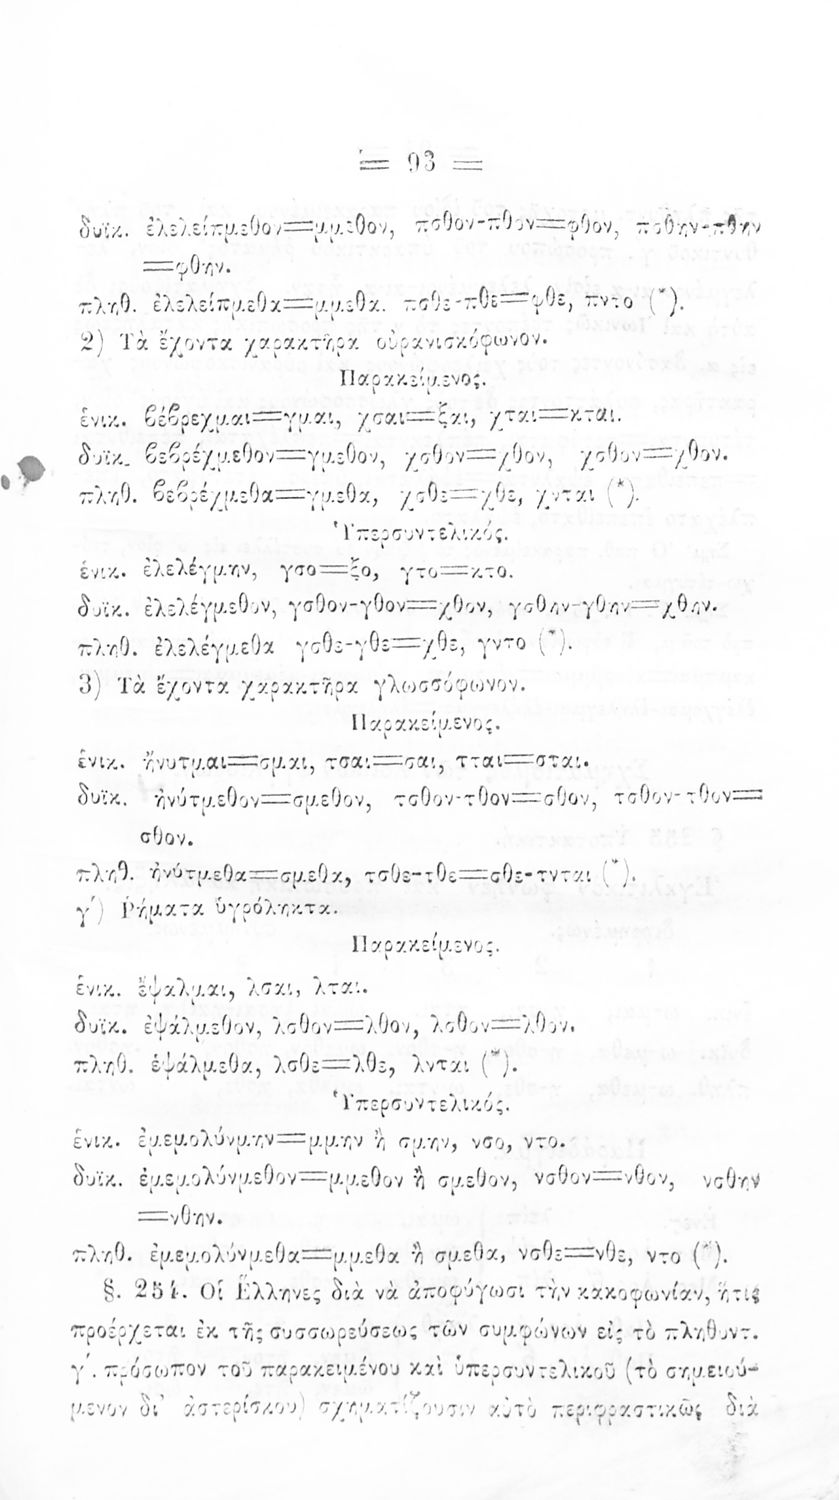 == 93 ==
δυϊκ. ἐλελείπμεθον==μμεθον, πσθον-πθον==φθον, πσθην-πθην
==φθην.
πληθ. ἐλελείπμεθα==μμεθα. πσθε-πθε==φθε, πντο (*).
2) Τὰ ἔχοντα χαρακτῆρα οὐρανισκόφωνον.
Παρακείμενος.
ἑνικ. βέβρεχμαι==γμαι, χσαι==ξαι, χται==κται.
δυϊκ. βεβρέχμεθον==γμεθον, χσθον==χθον, χσθον==χθον.
πληθ. βεβρέχμεθα==γμεθα, χσθε==χθε, χνται (*).
Ὑπερσυντελικός.
ἑνικ. ἐλελέγμην, γσο==ξο, γτο==κτο.
δυϊκ. ἐλελέγμεθον, γσθον-γθον==χθον, γσθην-γθην==χθην.
πληθ. ἐλελέγμεθα γσθε-γθε==χθε, γντο (*).
3) Τὰ ἔχοντα χαρακτῆρα γλωσσόφωνον.
Παρακείμενος.
ἑνικ. ἤνυτμαι==σμαι, τσαι==σαι, τται==σται.
δυϊκ. ἠνύτμεθον==σμεθον, τσθον-τθον==σθον, τσθον-τθον==
σθον.
πληθ. ἠνύτμεθα==σμεθα, τσθε-τθε==σθε-τνται (*).
γ΄) Ῥήματα ὑγρόληκτα.
Παρακείμενος.
ἑνικ. ἔψαλμαι, λσαι, λται.
δυϊκ. ἐψάλμεθον, λσθον==λθον, λσθον==λθον.
πληθ. ἐψάλμεθα, λσθε==λθε, λνται (*).
Ὑπερσυντελικός.
ἑνικ. ἐμεμολύνμην==μμην ἢ σμην, νσο, ντο.
δυϊκ. ἐμεμολύνμεθον==μμεθον ἢ σμεθον, νσθον==νθον, νσθην
==νθην.
πληθ. ἐμεμολύνμεθα==μμεθα ἢ σμεθα, νσθε==νθε, ντο (*).
§. 254. Οἱ Ἕλληνες διὰ νὰ ἀποφύγωσι τὴν κακοφωνίαν, ἥτις
προέρχεται ἐκ τῆς συσσωρεύσεως τῶν συμφώνων εἰς τὸ πληθυντ.
γ΄. πρόσωπον τοῦ παρακειμένου καὶ ὑπερσυντελικοῦ (τὸ σημειού-
μενον δι᾽ ἀστερίσκου) σχηματίζουσιν αὐτὸ περιφραστικῶς διὰ